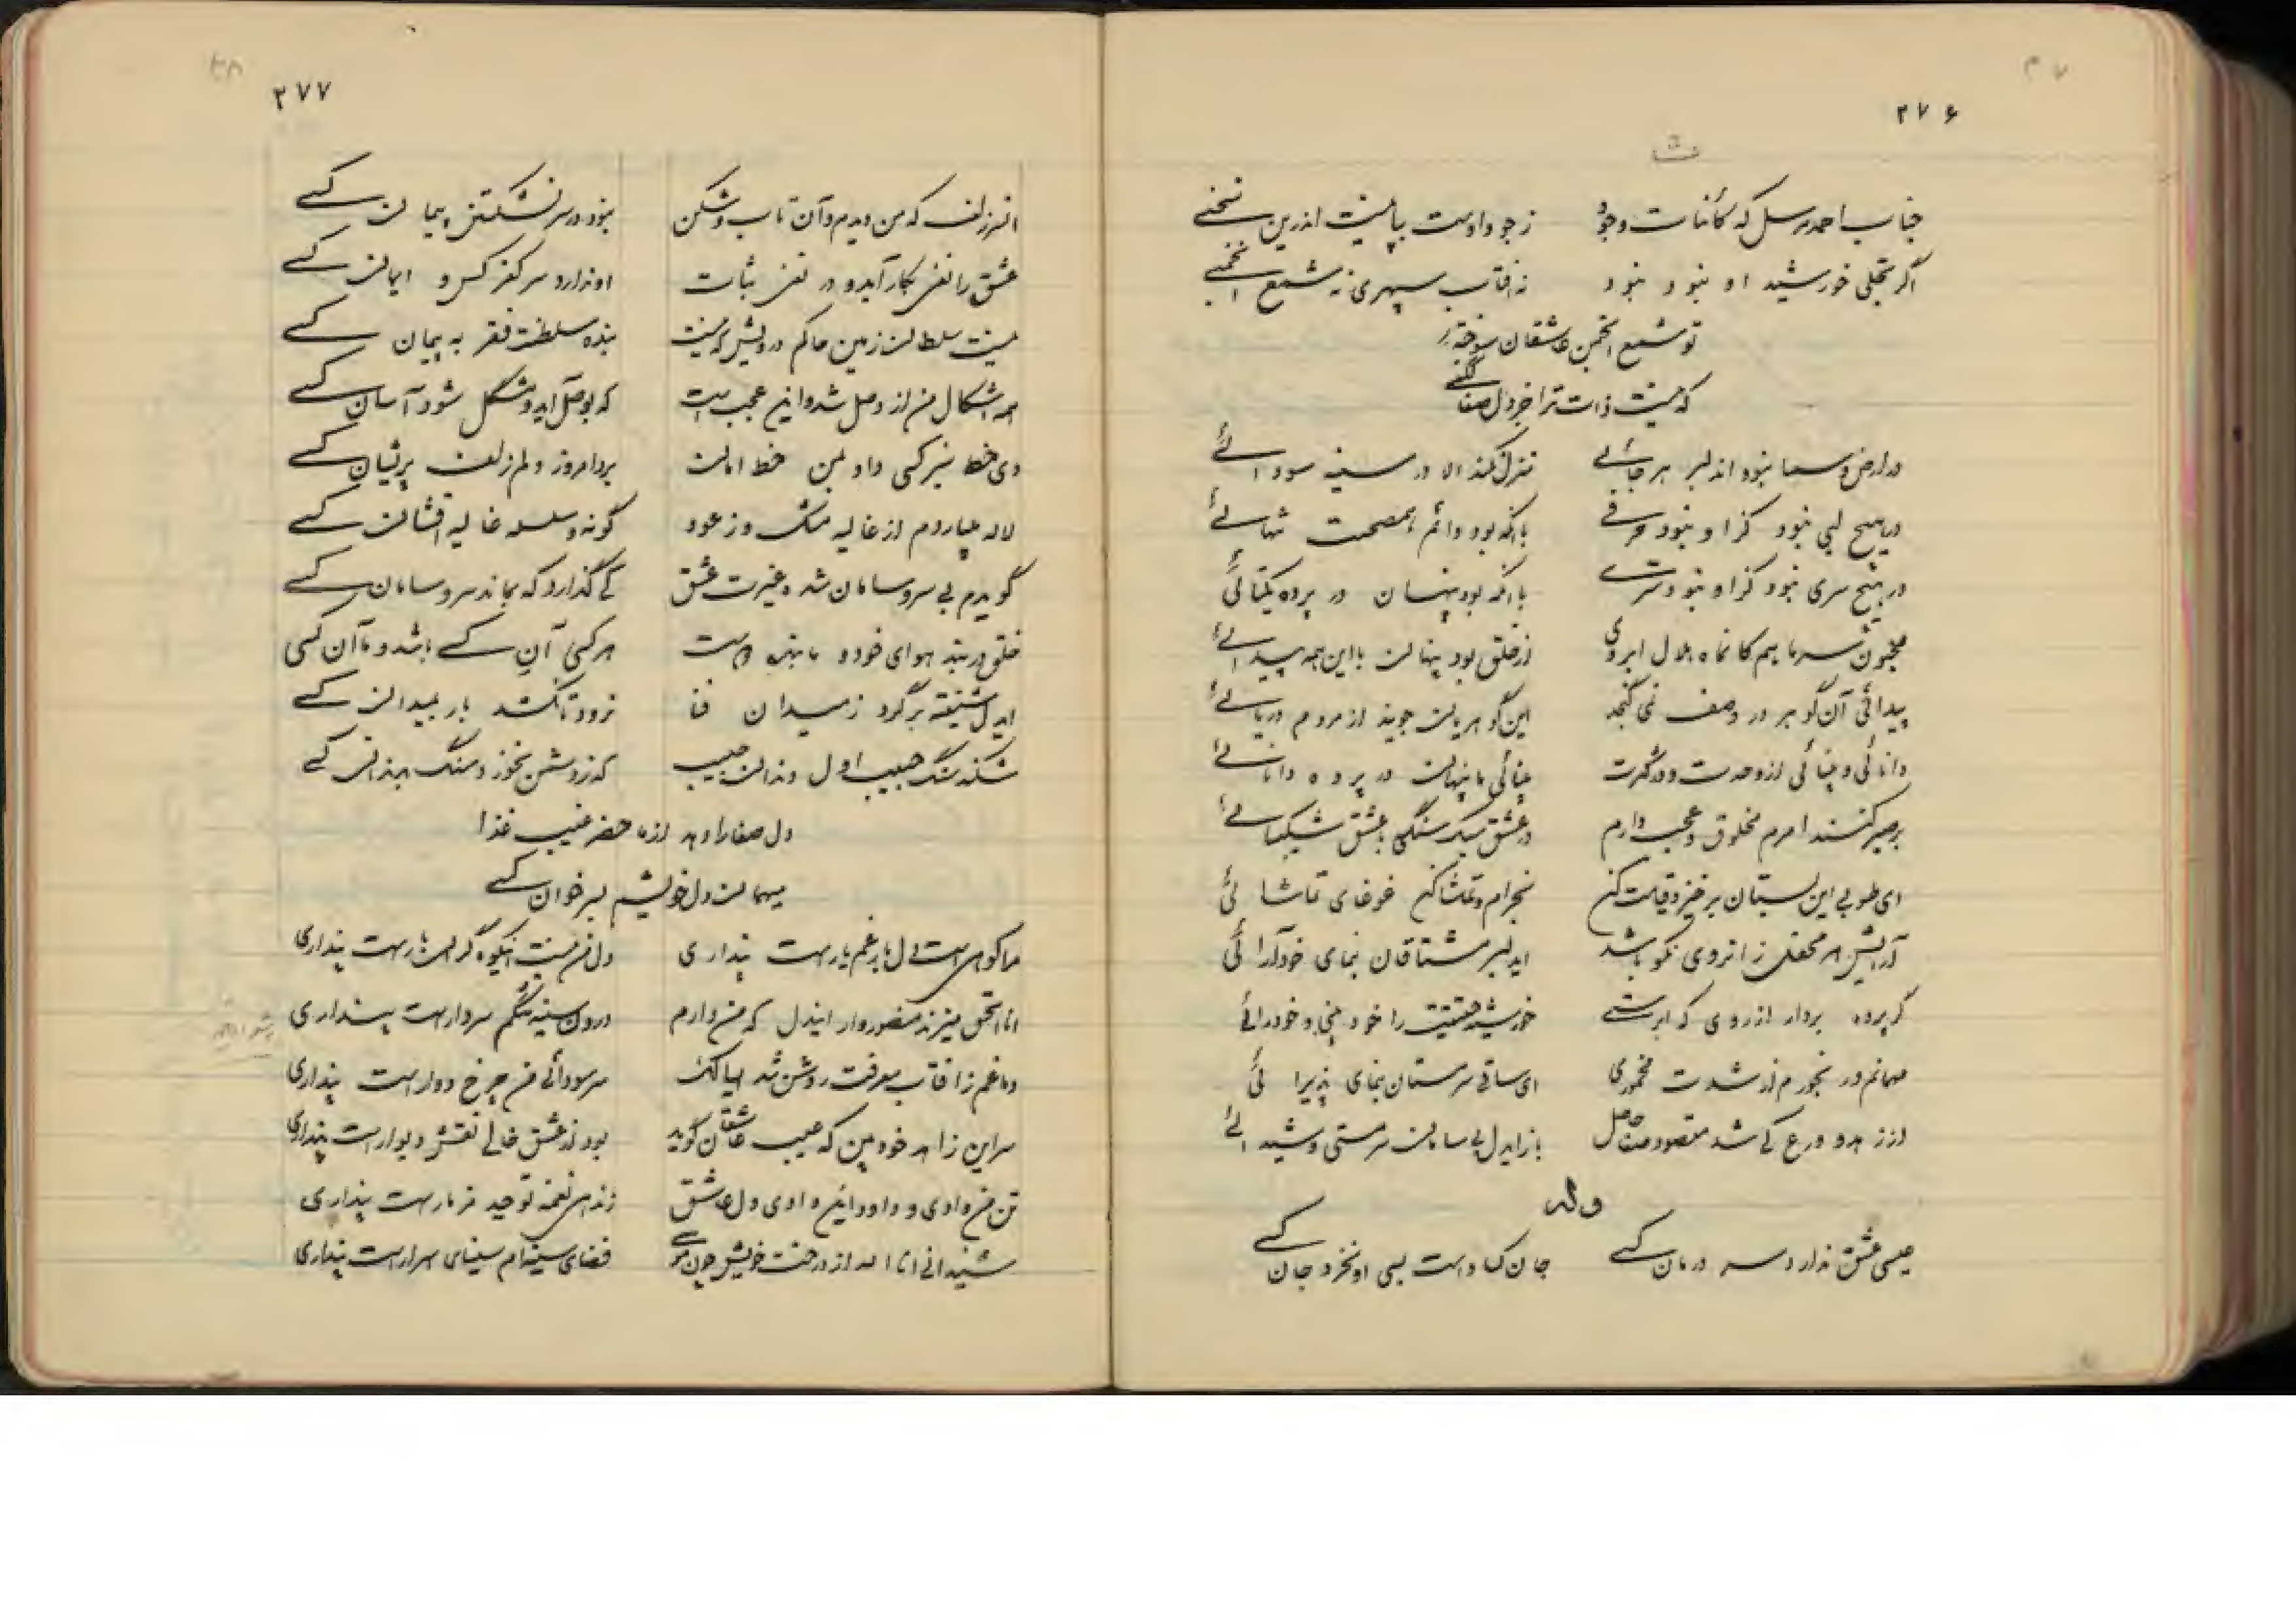 ۲۷۶
جناب احمد مرسل که کائنات وجود زجود اوست بپا نیست اندرین سخنی
اگر تجلی خورشید او نبود نبود نه افتاب سپهری نه شمع انجمنی
تو شمع انجمن عاشقان سوخته
که نیست ذات ترا جز دل صفا لگنی
در ارض و سما نبود اندلبر هرجائی منزل نکند الا در سینه سودائی
در هیچ لبی نبود کز او نبود حرفی باانکه بود دائم هم صحبت تنهائی
در هیچ سری نبود کز او نبود سری باانکه بود پنهان در پرده یکتائی
از خلق بود پنهان با این همه پیدائی
پیدائی آن گوهر در وصف نمی گنجد این گوهر یان جویند از مردم دریائی
دانائی و بینائی از وحدت و در کثرت بینائی ما پنهان در پرده دانائی
مخلوق و عجب دارم در عشق سبک سنگی با عشق شکیبائی
ای طوبی این بستان برخیز و قیامت کن بخرام و تماشا کن غوغای تماشائی
آرایش هر محفل زانروی نکو باشد ایدلبر مشتاقان بنمای خودآرائی
گر پرده بردار از روی که ابرستی خورشید حقیقت را خود بینی و خودرائی
مخموری ای ساقی سرمستان بنمای پذیرائی
از زهد و ورع کی شد مقصود صفا حاصل باز ایدل بی سامان سرمستی و شیدائی
وله
عیسی عشق ندارد سر درمان کسی جان که داست بسی او نخرد جان کسی
۲۷۷
انسر زلف که من دیدم و آن تاب و شکن نبود در سر نشکستن پیمان کسی
عشق را نفی بکار آید و در نفی ثبات او ندارد سر کفر کس و ایمان کسی
نیست سلطان زمین حاکم درویش که نیست بنده سلطنت فقر به پیمان کسی
همه اشکال من از وصل شد و این عجب است که بوصل آید و مشکل شود آسان کسی
دی خط سبز کسی داد بمن خط امان برد امروز دلم زلف پریشان کسی
لاله میبارد از غالیه مشک و ز عود گونه و سلسله غالیه افشان کسی
گویدم بی سر و سامان شده غیرت عشق کی گذارد که بماند سر و سامان کسی
خلق در بند هوای خود و ما بنده دوست هر کسی آن کسی باشد و ما آن کسی
ایدل شیفته برگرد ز میدان فنا نرود تا نکشد بار بمیدان کسی
شکند سنگ حبیب ایدل دندان حبیب که ز دشمن نخورد سنگ بدندان کسی
دل صفا را دهد از ماحضر غیب غذا
میهمان دل خویشیم بسر خوان کسی
دل من نیست اینکوه گران بارست پنداری
انا الحق میزند منصوروار ایندل که من دارم درون سینه تنگم سر دارست پنداری
دماغم ز افتاب معرفت روشن شد سر سودائی من چرخ دوارست پنداری
سر این زاهد خودبین که عیب عاشقان گوید بود از عشق خالی نقش دیوارست پنداری
تن من وادی و داود این وادی دل عاشق زند هی نغمه توحید مزمارست پنداری
شنید انی انا الله از درخت خویش چون موسی فضای سینه ام سینای اسرارست پنداری